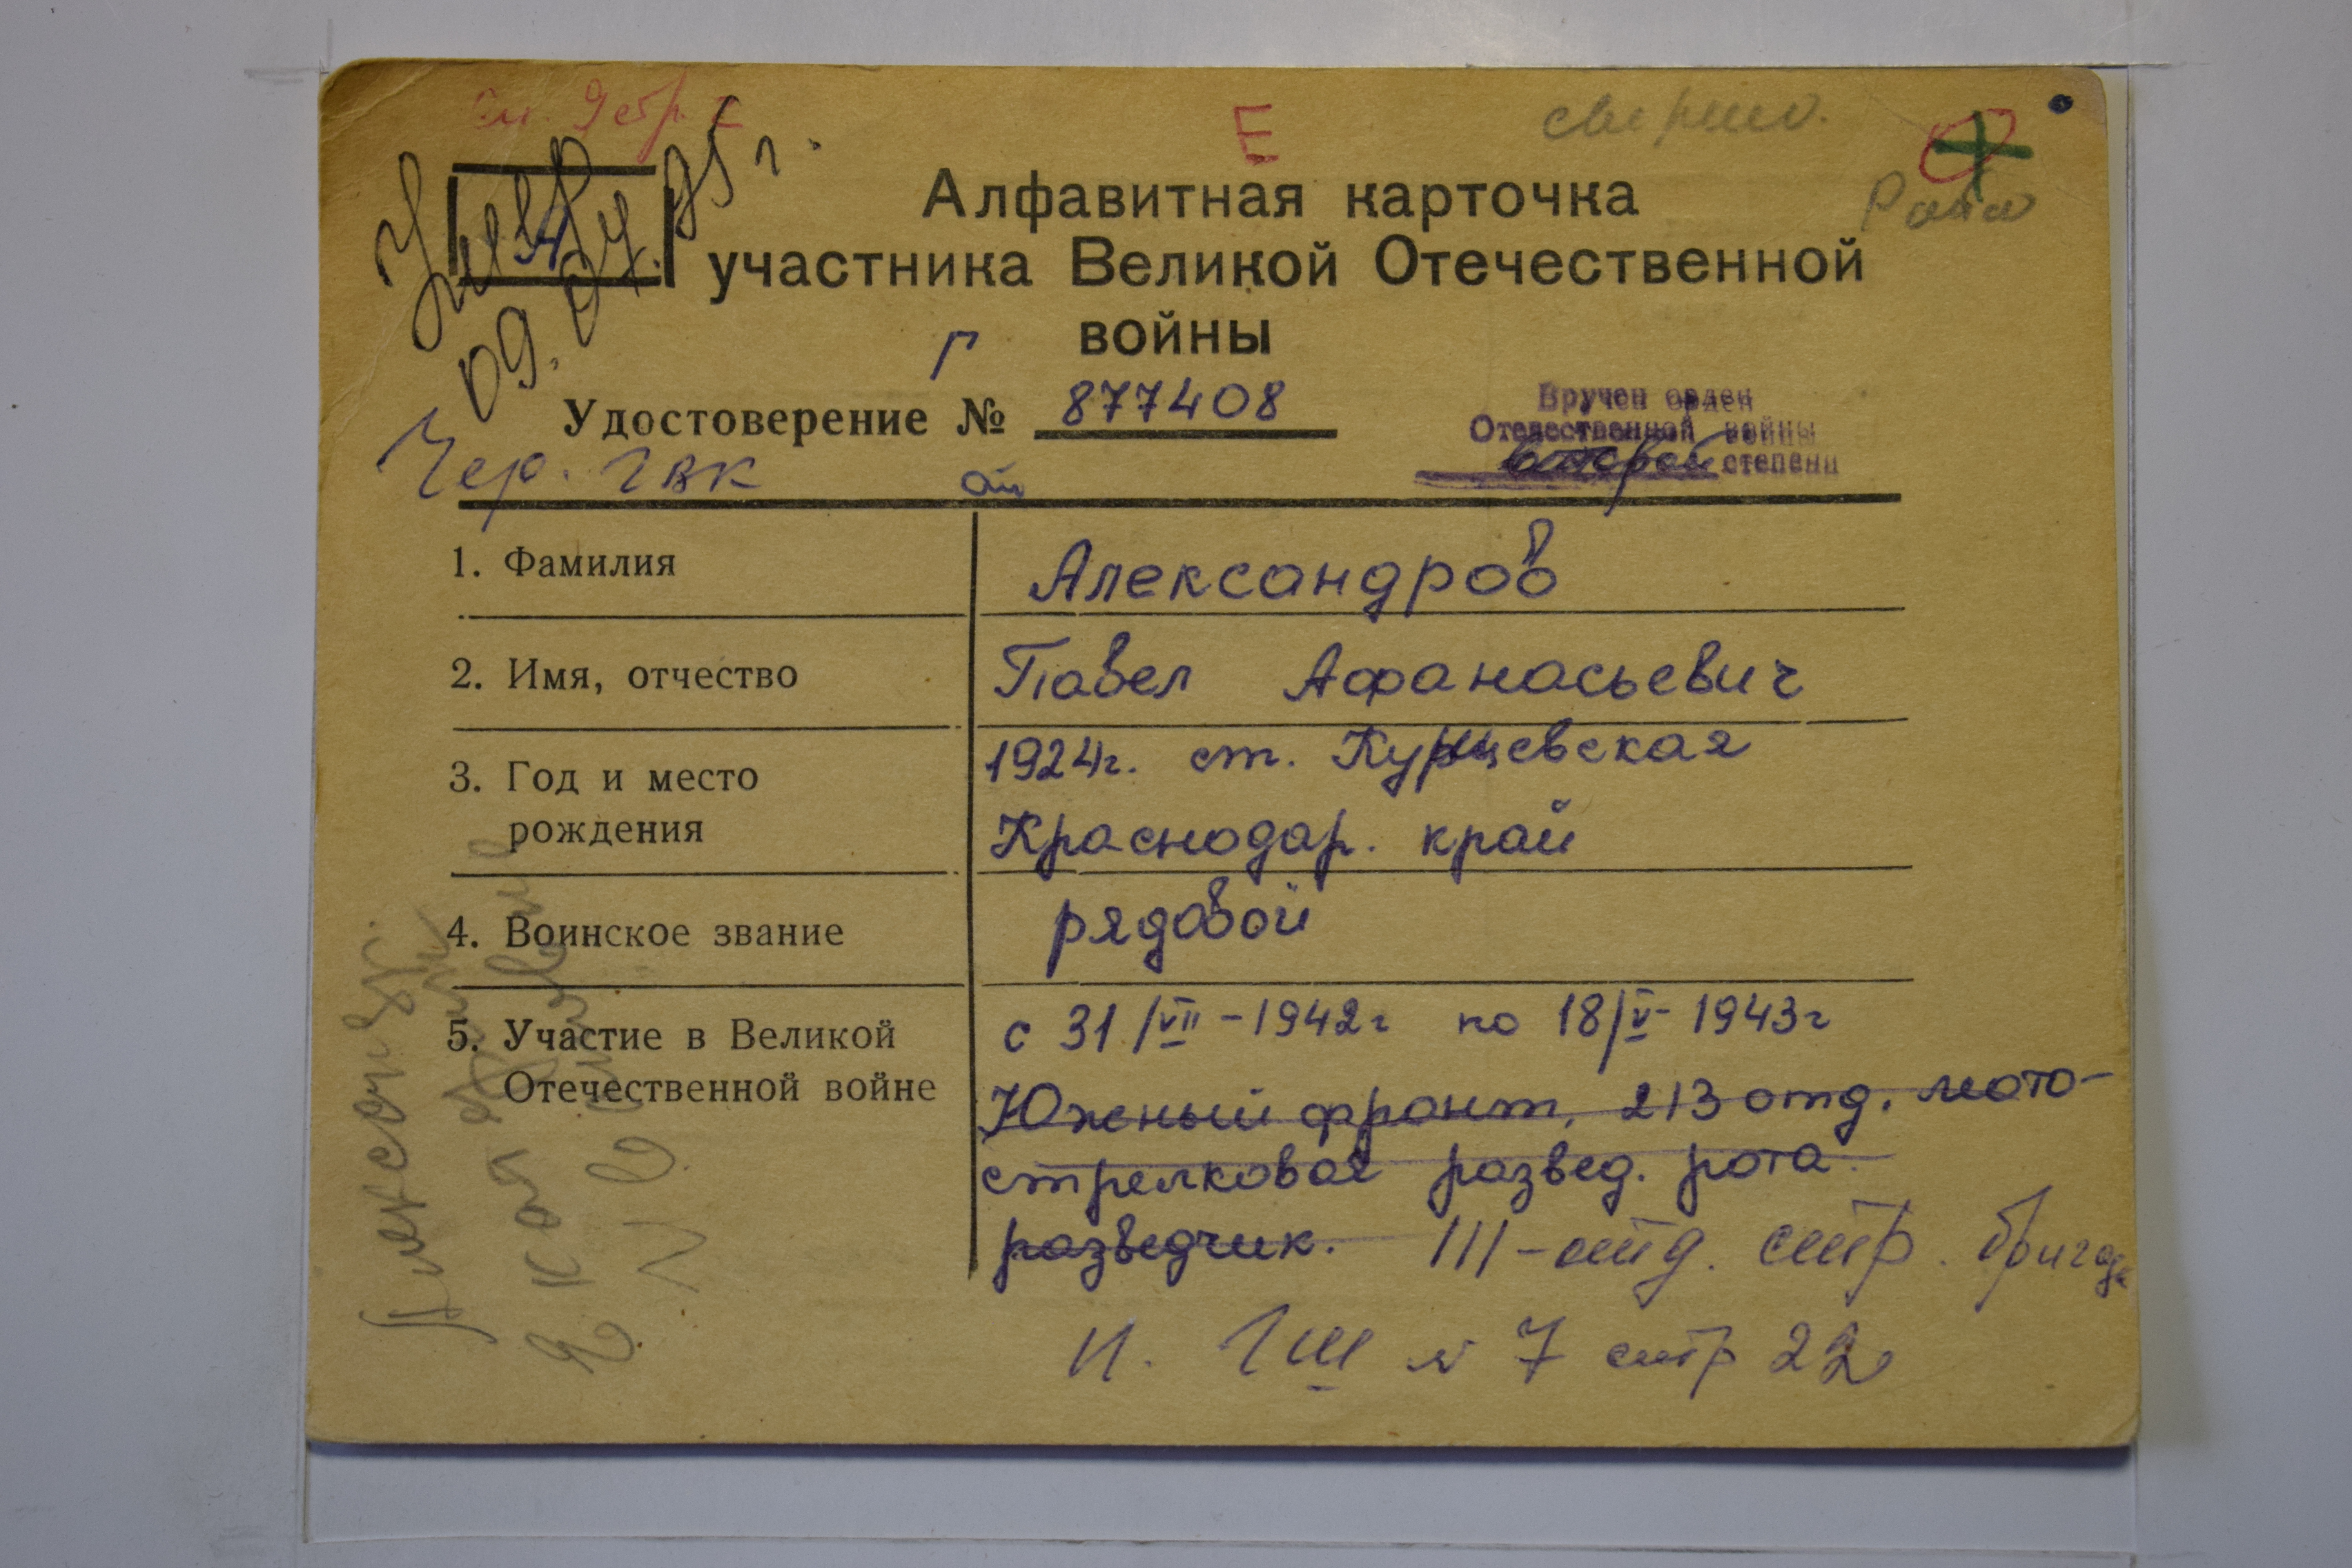 Е
сверено.
Умер
09.04.95 г.
Алфавитная карточка
участника Великой Отечественной
войны
Г
Удостоверение № 877408
Вручен орден
Отечественной войны
второй степени
Чер. ГВК
1. Фамилия Александров
2. Имя, отчество Павел Афанасьевич
3. Год и место рождения 1924г. ст. Курщевская
Краснодар. край
4. Воинское звание рядовой
5. Участие в Великой Отечественной войне с 31/VII-1942г по 18/V-1943г
Южный фронт, 213 отд. мото-
стрелковая развед. рота
разведчик. 111-отд. стр. бригада
П. ГШ № 7 стр 22